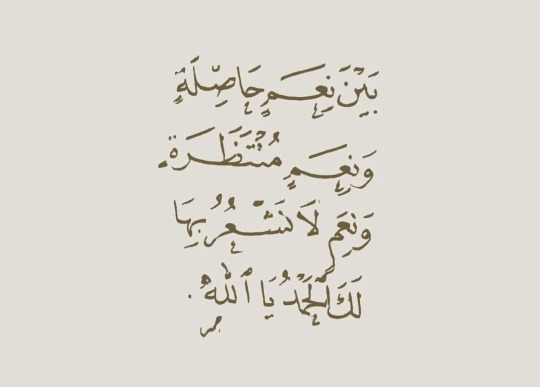 بَيْنَ نِعَمٍ حَاصِلَةٍ
وَنِعَمٍ مُنْتَظَرَةٍ
وَنِعَمٍ لَا نَشْعُرُ بِهَا
لَكَ الْحَمْدُ يَا اللهُ.